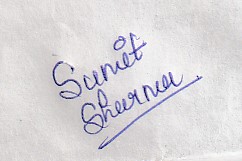 Sumit
Sharma